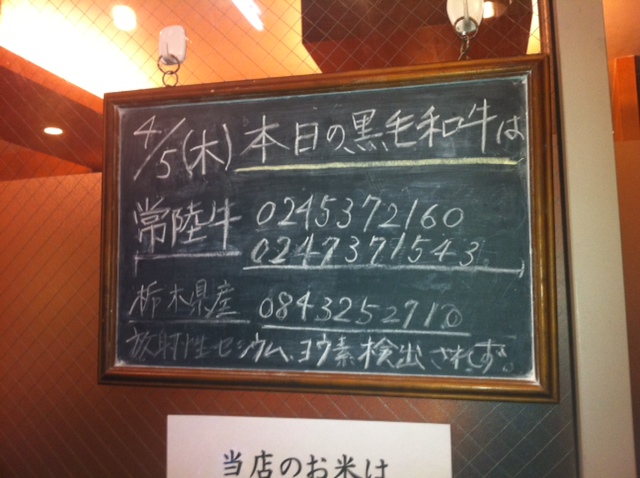 4/5(木)本日の黒毛和牛は
常陸牛 0245372160
0247371543
栃木県産 0843252710
放射性セシウム、ヨウ素検出されず。
当店のお米は